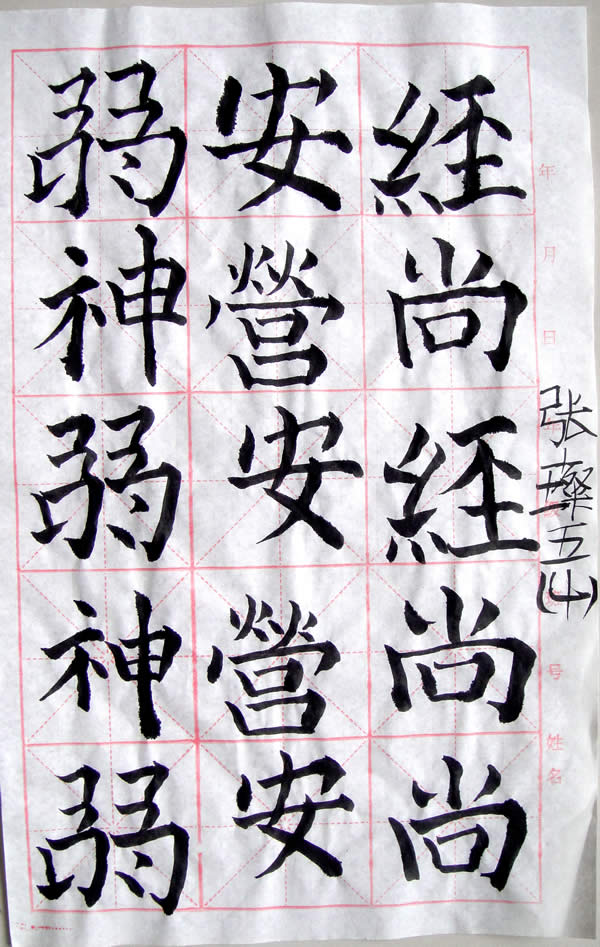 年 月 日 号 姓名
张璨五(4)
經尚經尚尚
安營安營安
弱神弱神弱